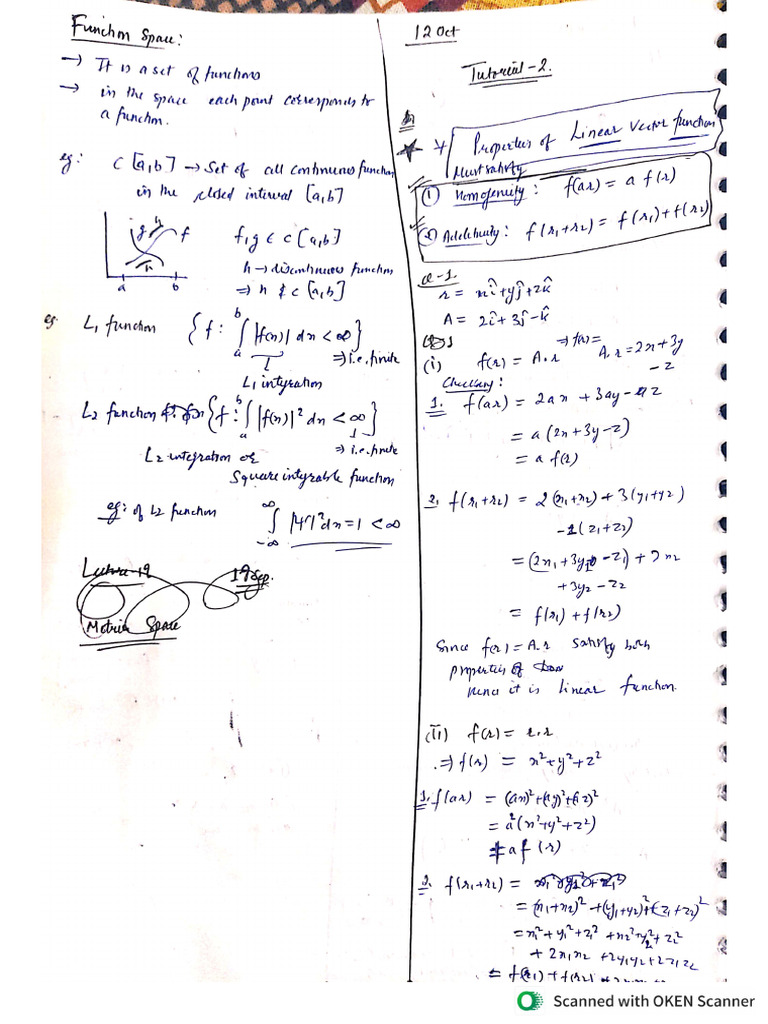 Function Space:
→ It is a set of functions
→ in the space each point corresponds to
a function.
eg: C [a,b] → Set of all continuous function
in the closed interval [a,b]
g h f
h
a b
f, g ∈ C [a,b]
h → discontinuous function
⇒ h ∉ C [a,b]
eg L₁ function { f : ∫ₐᵇ |f(x)| dx < ∞ }
⇒ i.e. finite
L₁ integration
L₂ function { f : ∫ₐᵇ |f(x)|² dx < ∞ }
⇒ i.e. finite
L₂ integration or
Square integrable function
eg: of L₂ function ∫₋∞^∞ |Ψ|² dx = 1 < ∞
Lecture-19 19 Sep.
Metric Space
12 Oct
Tutorial - 2.
Properties of Linear Vector function
Must satisfy
① Homogenuity: f(ar) = a f(r)
② Additivity: f(r₁+r₂) = f(r₁) + f(r₂)
Q-1
r = xî+yĵ+zk̂
A = 2î+3ĵ-k̂
(i) f(r) = A.r ⇒ f(r) = A.r = 2x+3y
- z
Checking:
1. f(ar) = 2ax + 3ay - az
= a (2x+3y-z)
= a f(r)
2. f(r₁+r₂) = 2(x₁+x₂) + 3(y₁+y₂)
-1(z₁+z₂)
= (2x₁+3y₁-z₁) + 2x₂
+3y₂-z₂
= f(r₁) + f(r₂)
Since f(r) = A.r satisfy both
properties of
hence it is linear function.
(ii) f(r) = r.r
⇒ f(r) = x²+y²+z²
1. f(ar) = (ax)²+(ay)²+(az)²
= a²(x²+y²+z²)
≠ a f(r)
2. f(r₁+r₂) =
= (x₁+x₂)² + (y₁+y₂)² + (z₁+z₂)²
= x₁²+y₁²+z₁² + x₂²+y₂²+z₂²
+ 2x₁x₂ + 2y₁y₂ + 2z₁z₂
= f(r₁) + f(r₂) +
Scanned with OKEN Scanner